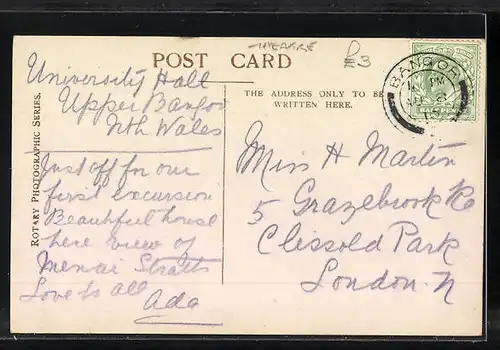 POST CARD
THEATRE
£3
University Hall
Upper Bangor
Nth Wales
THE ADDRESS ONLY TO BE
WRITTEN HERE.
BANGOR
PM
ROTARY PHOTOGRAPHIC SERIES.
Just off for our
first excursion
Beautiful house
here view of
Menai Straits
Love to all
Ada
Miss H Martin
5 Grazebrook Rd
Clissold Park
London. N